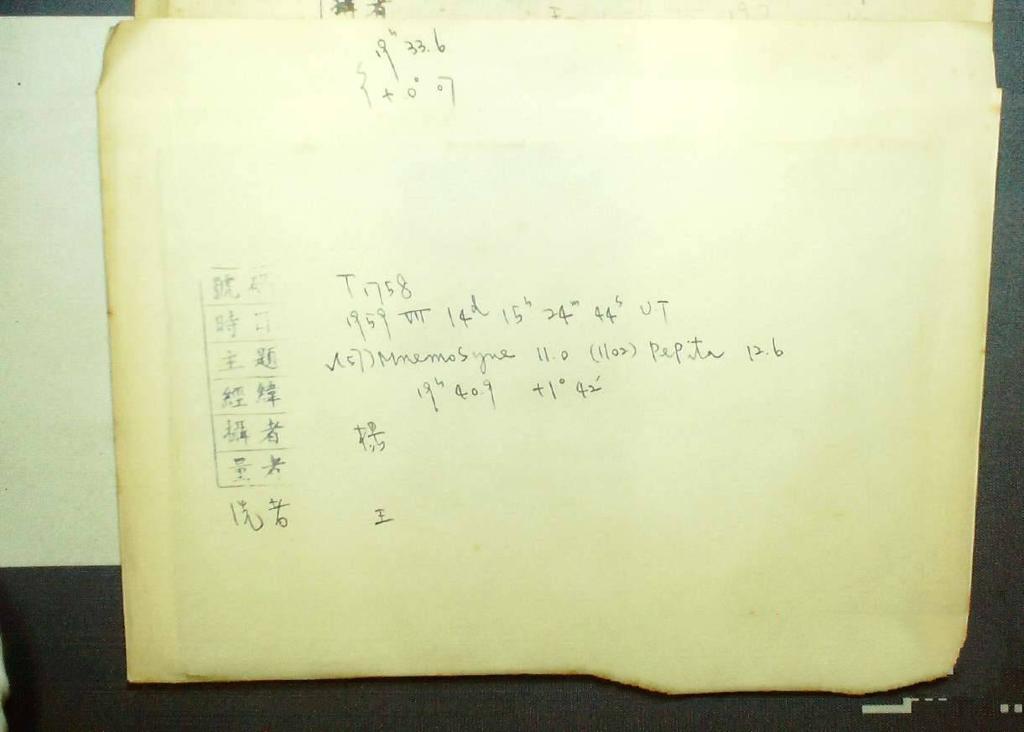 攝者
19ʰ 33.6
+0° 07
號碼 T 1758
時日 1959 VII 14ᵈ 15ʰ 24ᵐ 44ˢ UT
主題 (57) Mnemosyne 11.0 (1102) Pepita 12.6
經緯 19ʰ 40.9 +1° 42'
攝者 楊
量者
洗者 王